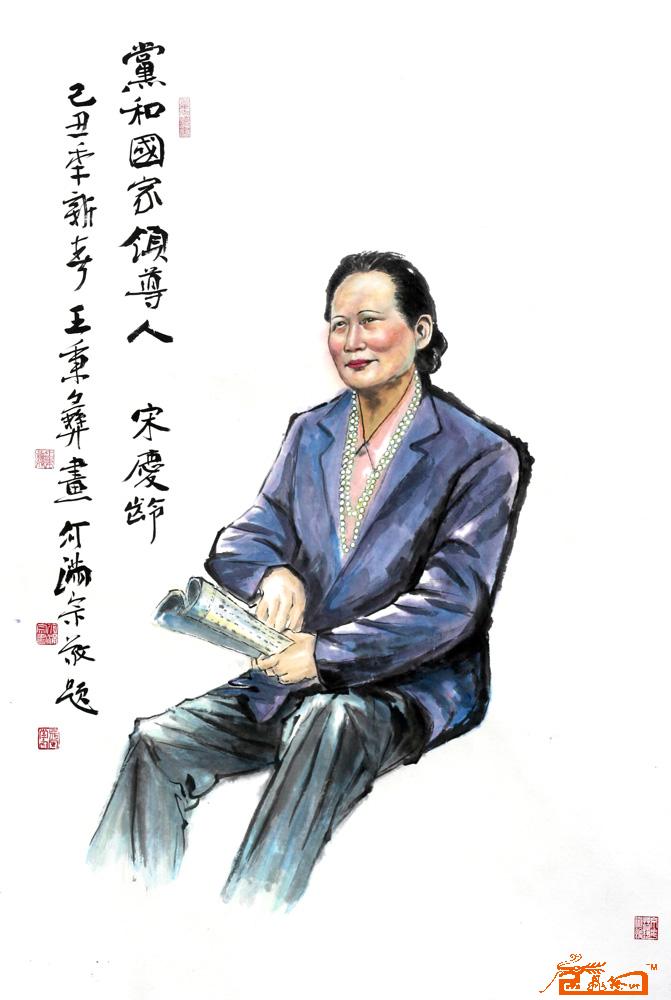 黨和國家領導人 宋慶齡
己丑年新春 王秉彝畫 何滿宗敬題